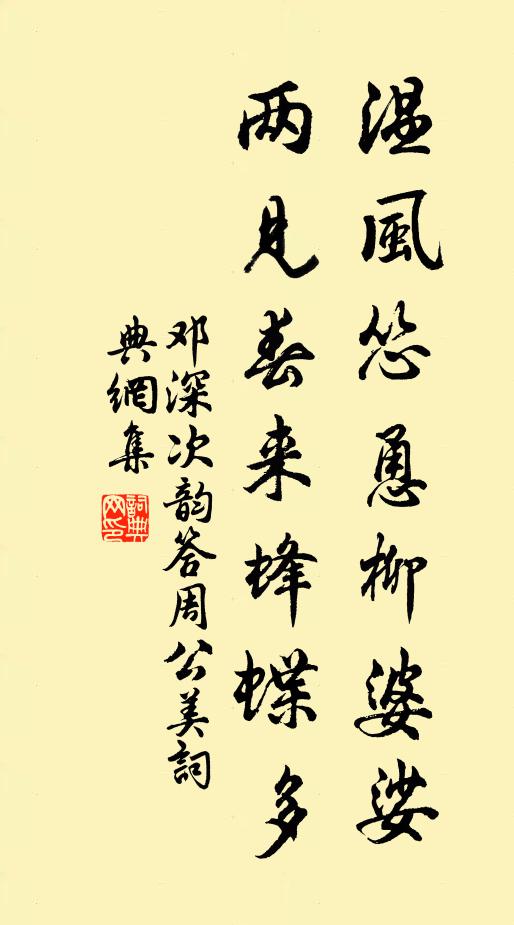 温風怂恿柳婆娑
两見春来蜂蝶多
邓深次韵答周公美詞
典網集
詞典
网印